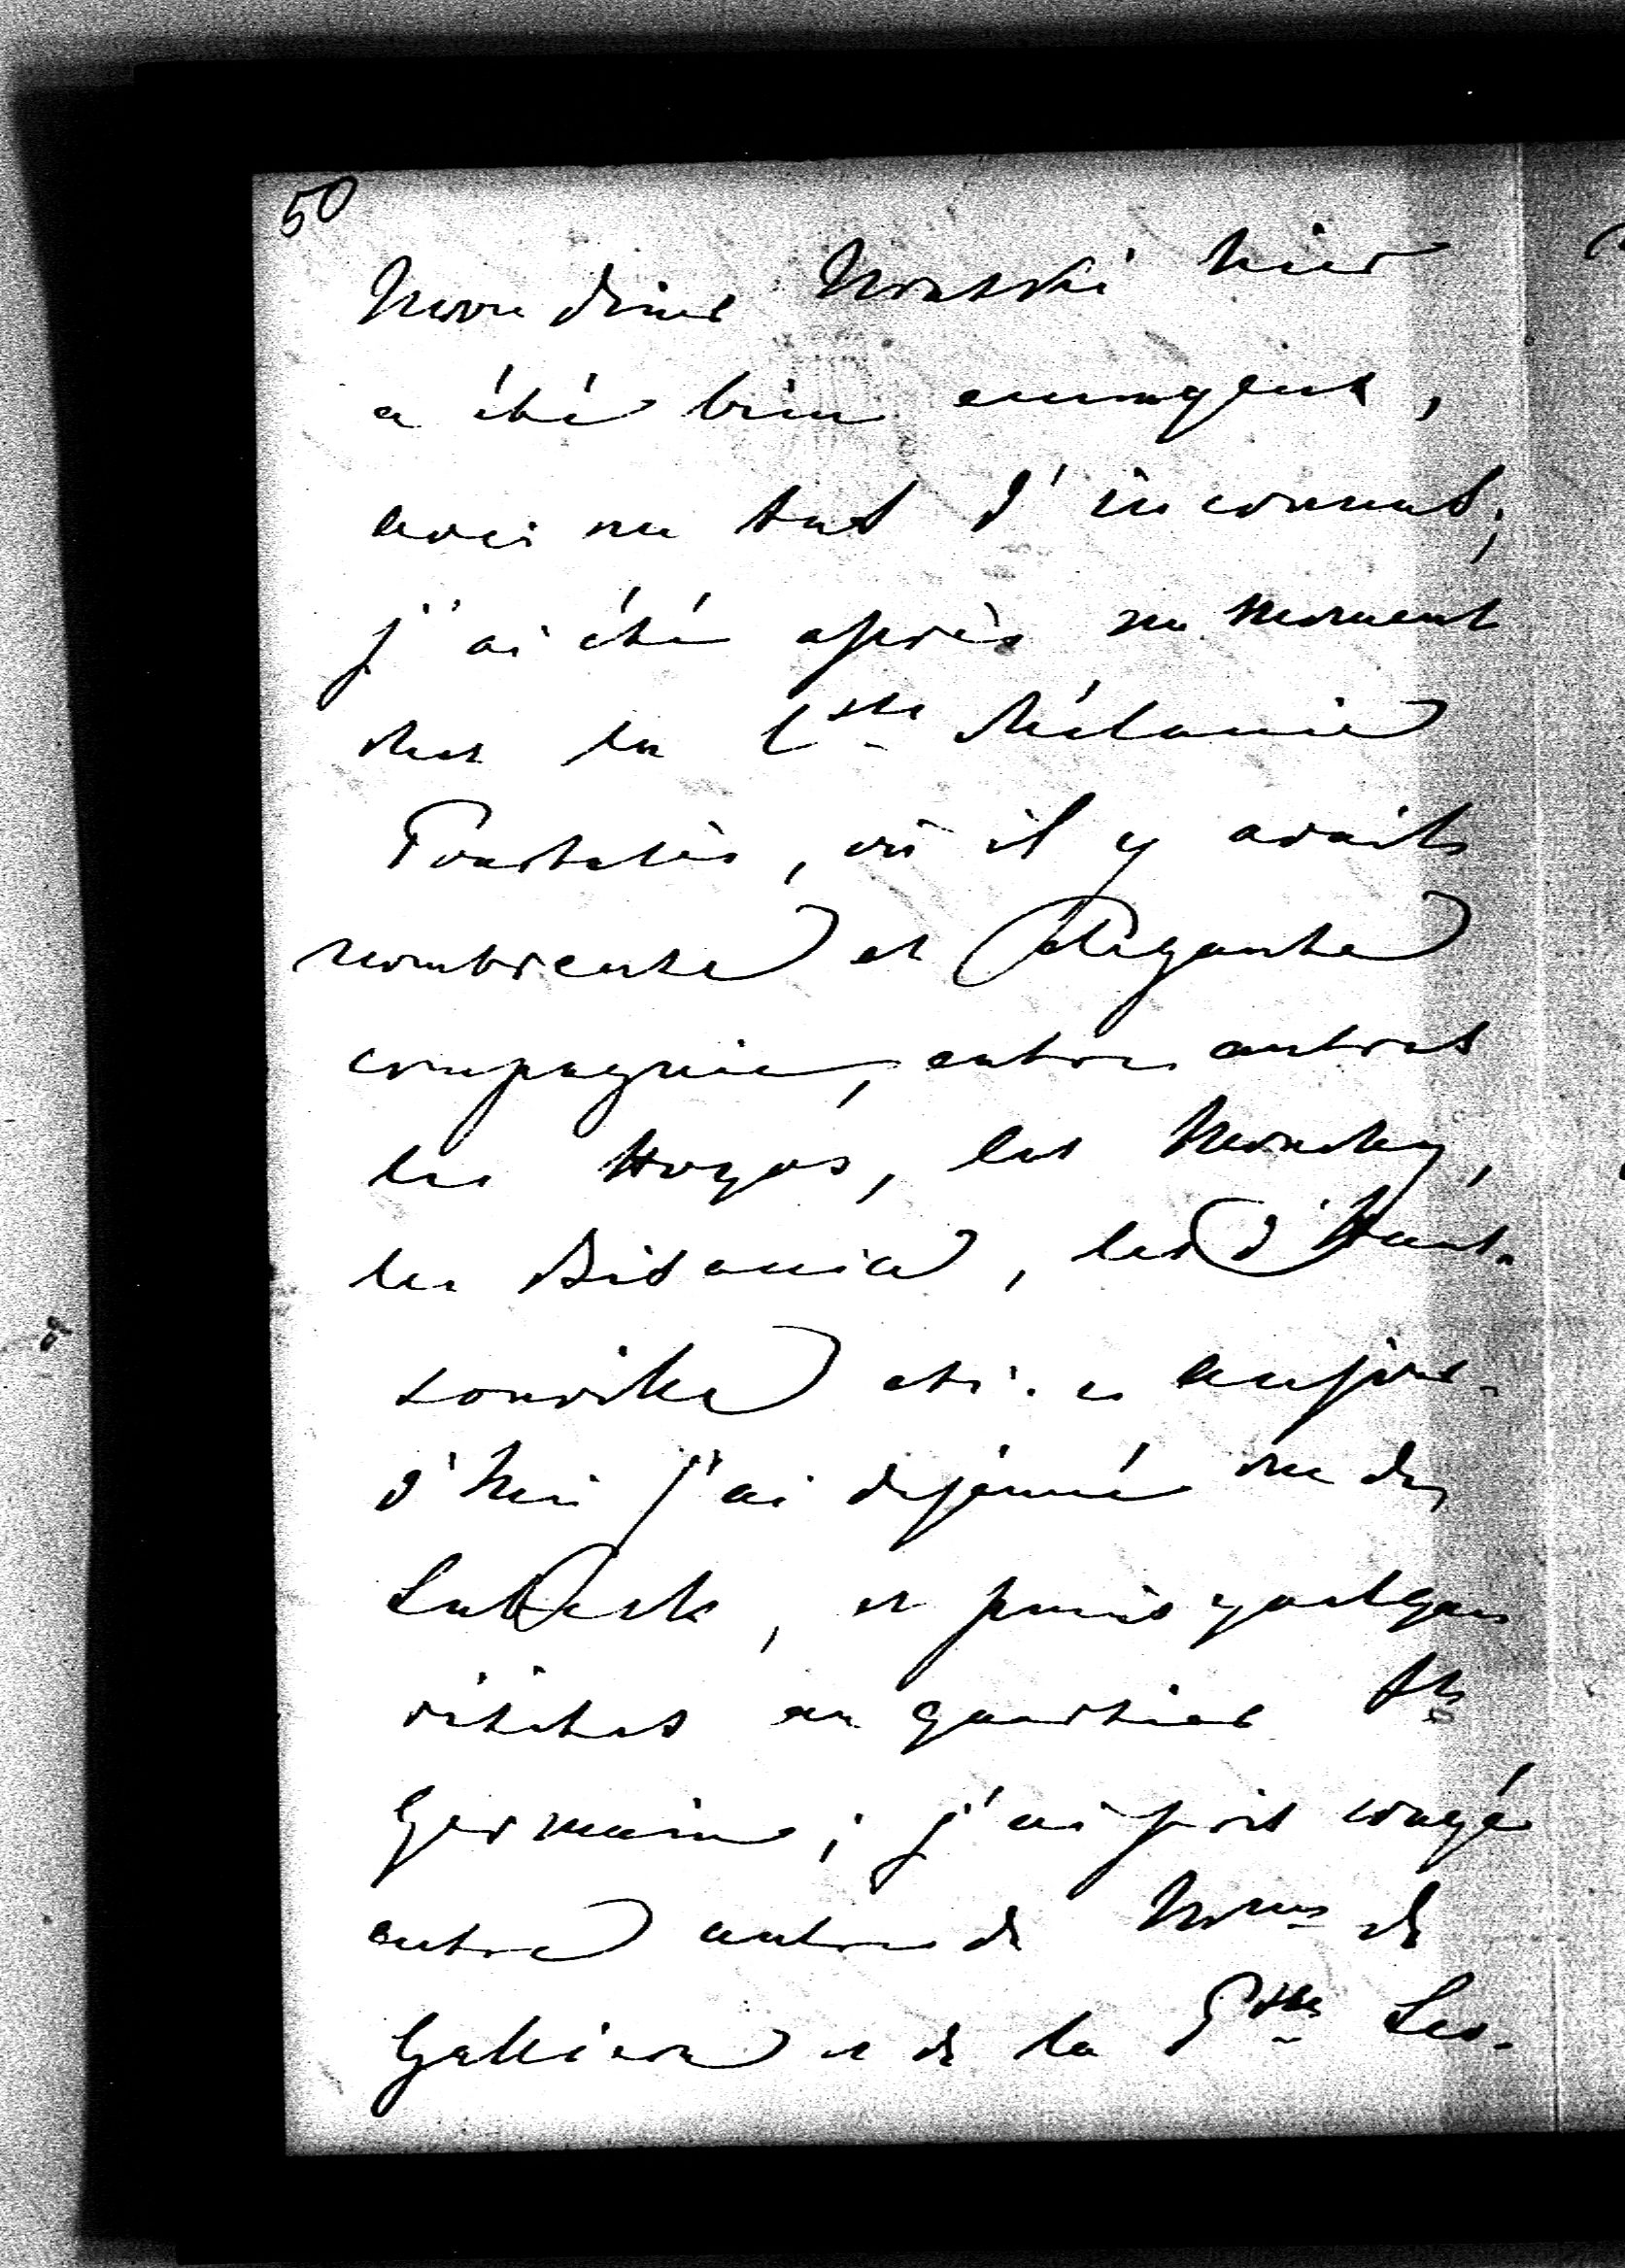 50
Mon diner Mouski hier
a été bien ennuyeux,
avec un tas d'inconnus;
j'ai été après un moment
chez la Csse Mélanie
Pourtalès, où il y avait
nombreuse et élégante
compagnie, entre autres
les Hoyos, les Mouchy,
les Bisaccia, les d'Haus-
sonville etc. et aujour-
d'hui j'ai dejeuné rue de
Lubeck, et puis quelques
visites au quartier St
Germain; j'ai pris congé
entre autres de Mme de
Galliera et de la Psse Léo-